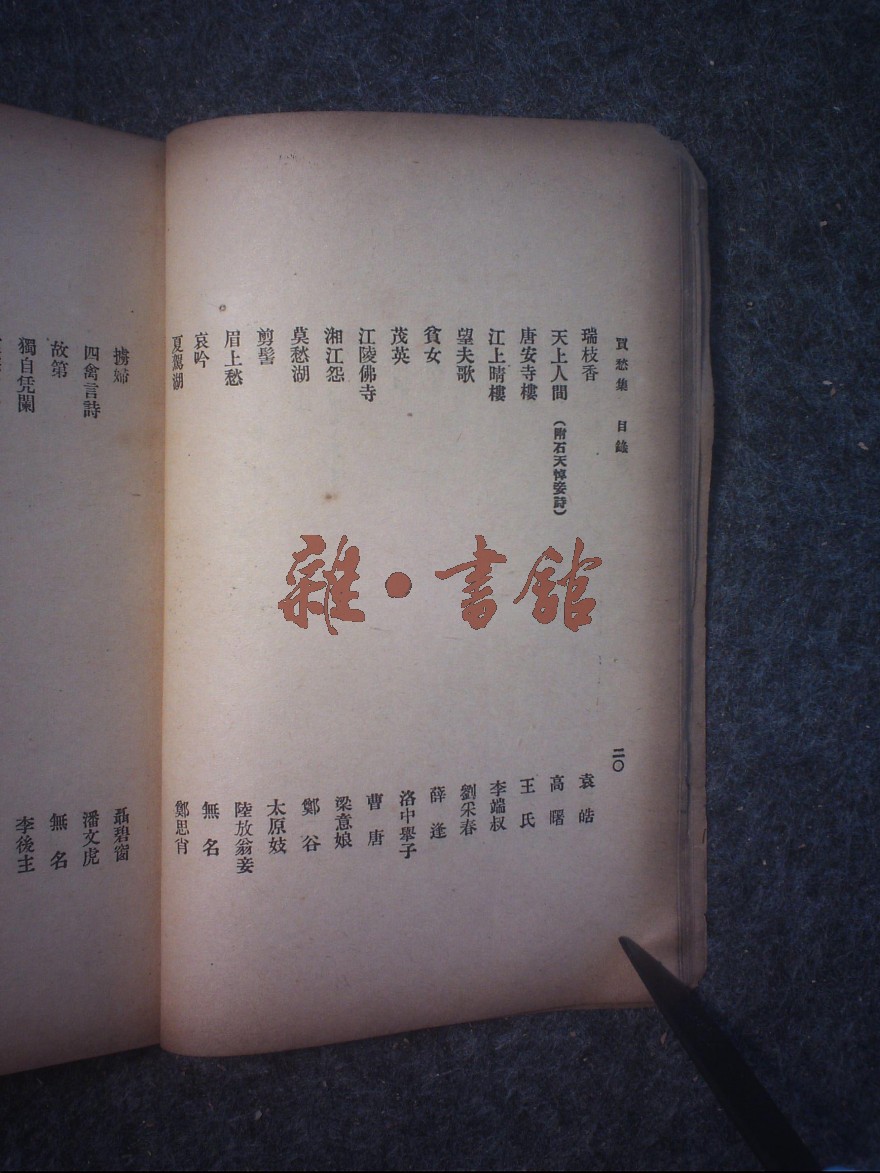 買愁集 目錄
二〇
瑞枝香 袁皓
天上人間 (附石天悼妾詩) 高曙
唐安寺樓 王氏
江上晴樓 李端叔
望夫歌 劉采春
貧女 薛逢
茂英 洛中舉子
江陵佛寺 曹唐
湘江怨 梁意娘
莫愁湖 鄭谷
剪髻 太原妓
眉上愁 陸放翁妾
哀吟 無名
夏駕湖 鄭思肖
擄婦 聶碧窗
四禽言詩 潘文虎
故第 無名
獨自凭闌 李後主
雜·書館